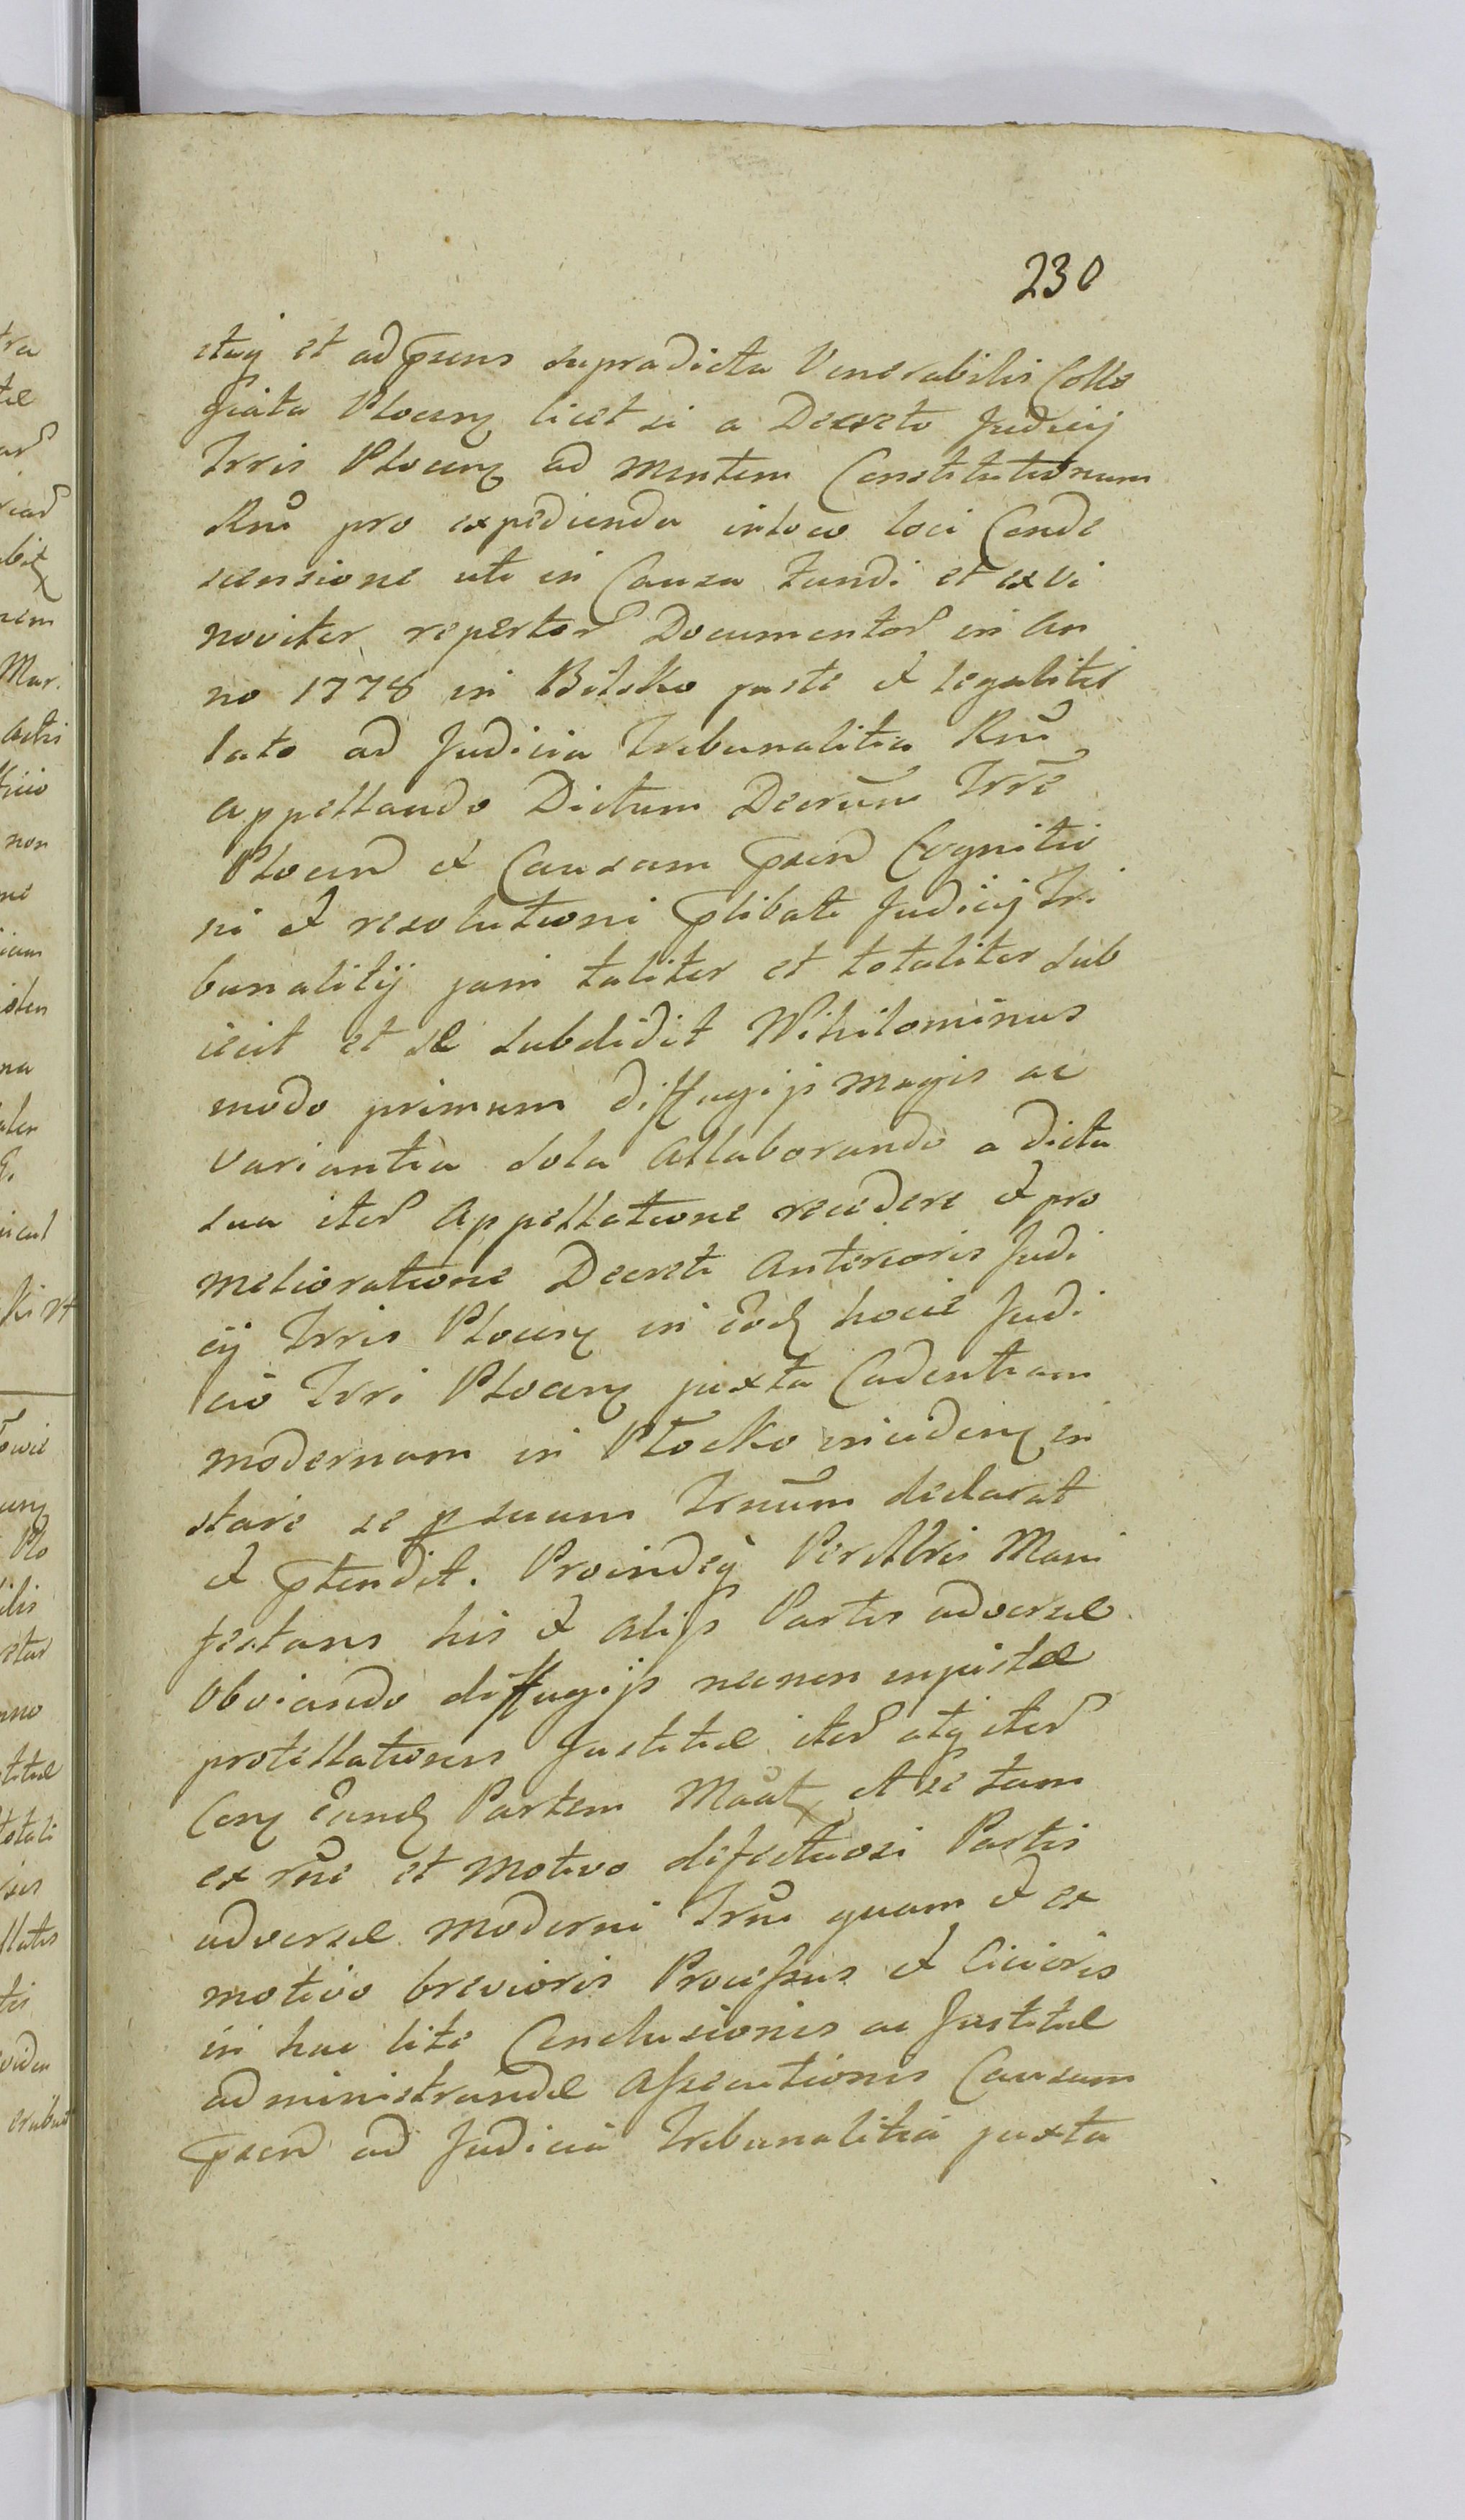 230
itaq et ad psens supradicta Venerabilis Colle
giata Plocen licet si a Decreto Judicij
Trris Plocen ad mentem Constitutionum
Rni pro expedienda in loco loci Conde
scensione uti in Causa fundi et ex vi
noviter repertor Documentor in An
no 1778 in Bilsko juste et legaliter
lato ad Judicia Tribunalitia Rni
appellando Dictum Decrum Trre
Plocen et Causam psen Cognitio
ni et resolutioni plibati Judicij Tri
bunalitij jam taliter et totaliter sub
iecit et se subdidit Nihilominus
modo primum diffugijs magis ac
variantia sola allaborando a dicta
sua iter appellatione recedere et pro
melioratione Decreti Anterioris Judi
cij Trris Plocen in eod hocce Judi
cio Trri Plocen juxta Cadentiam
modernam in Płocko inciden in
stare se p suum Trnum declarat
et ptendit. Proindeq Per Abris Mani
festans his et alijs Partis adversæ
obviando diffugijs necnon injustæ
protestationis Justitiæ iter atq iter
Con eand Partem Maat et se tam
ex rne et motivo defectuosi Partis
adversæ moderni Trni quam et ex
motivo brevioris Processus et Citioris
in hac lite Conclusionis ac Justitiæ
administrandæ assecutionis Causam
psen ad Judicia Tribunalitia juxta